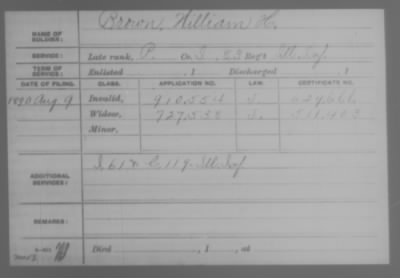 NAME OF SOLDIER: Brown, William H.
SERVICE: Late rank, P. Co. I, 83 Reg't Ill. Inf.
TERM OF SERVICE: Enlisted , 1 Discharged , 1
DATE OF FILING. CLASS. APPLICATION NO. LAW. CERTIFICATE NO.
1890 Aug 9 Invalid, 910.554 J. 629.666
Widow, 727.538 J. 511.403
Minor,
ADDITIONAL SERVICES: I, 61 & C 119 Ill. Inf
REMARKS:
Died , 1 , at